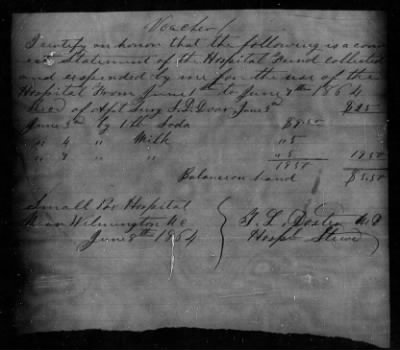 Voucher 1
I certify on honor that the following is a corr
ect Statement of the Hospital Fund collected
and expended by me for the use of the
Hospital From June 1st to June 8th 1864
Rec'd of Apt Surg June 3rd $25
June 3rd By 1 lb Soda $9.50
" 4 " Milk " 5
" 7 " " " 5 19.50
19.50
Balance on hand $5.50
Small Pox Hospital
Near Wilmington NC
June 8th 1864
Hosp Stew